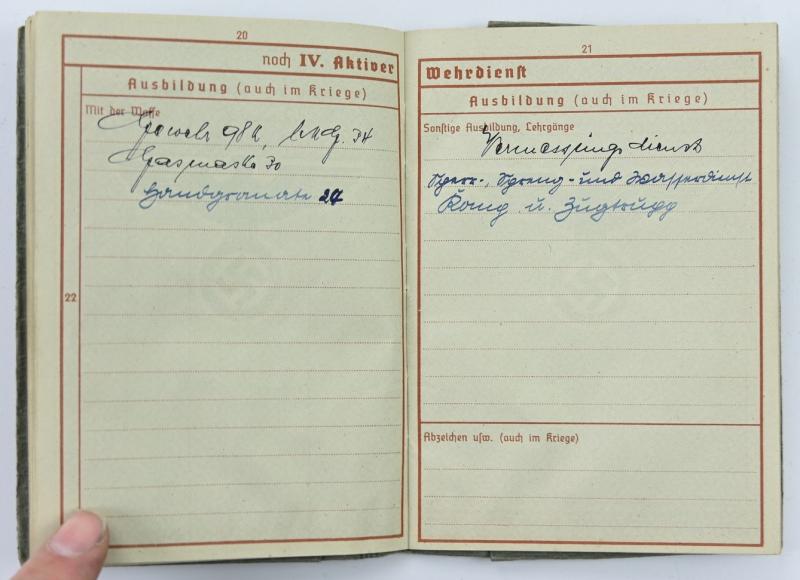 20
noch IV. Aktiver
Ausbildung (auch im Kriege)
Mit der Waffe
Gewehr 98k, l.M.G. 34
Gasmaske 30
Handgranate 24
22
21
Wehrdienst
Ausbildung (auch im Kriege)
Sonstige Ausbildung, Lehrgänge
Vermessungsdienst
Sperr-, Spreng- und Wasserdienst
u.
Abzeichen usw. (auch im Kriege)